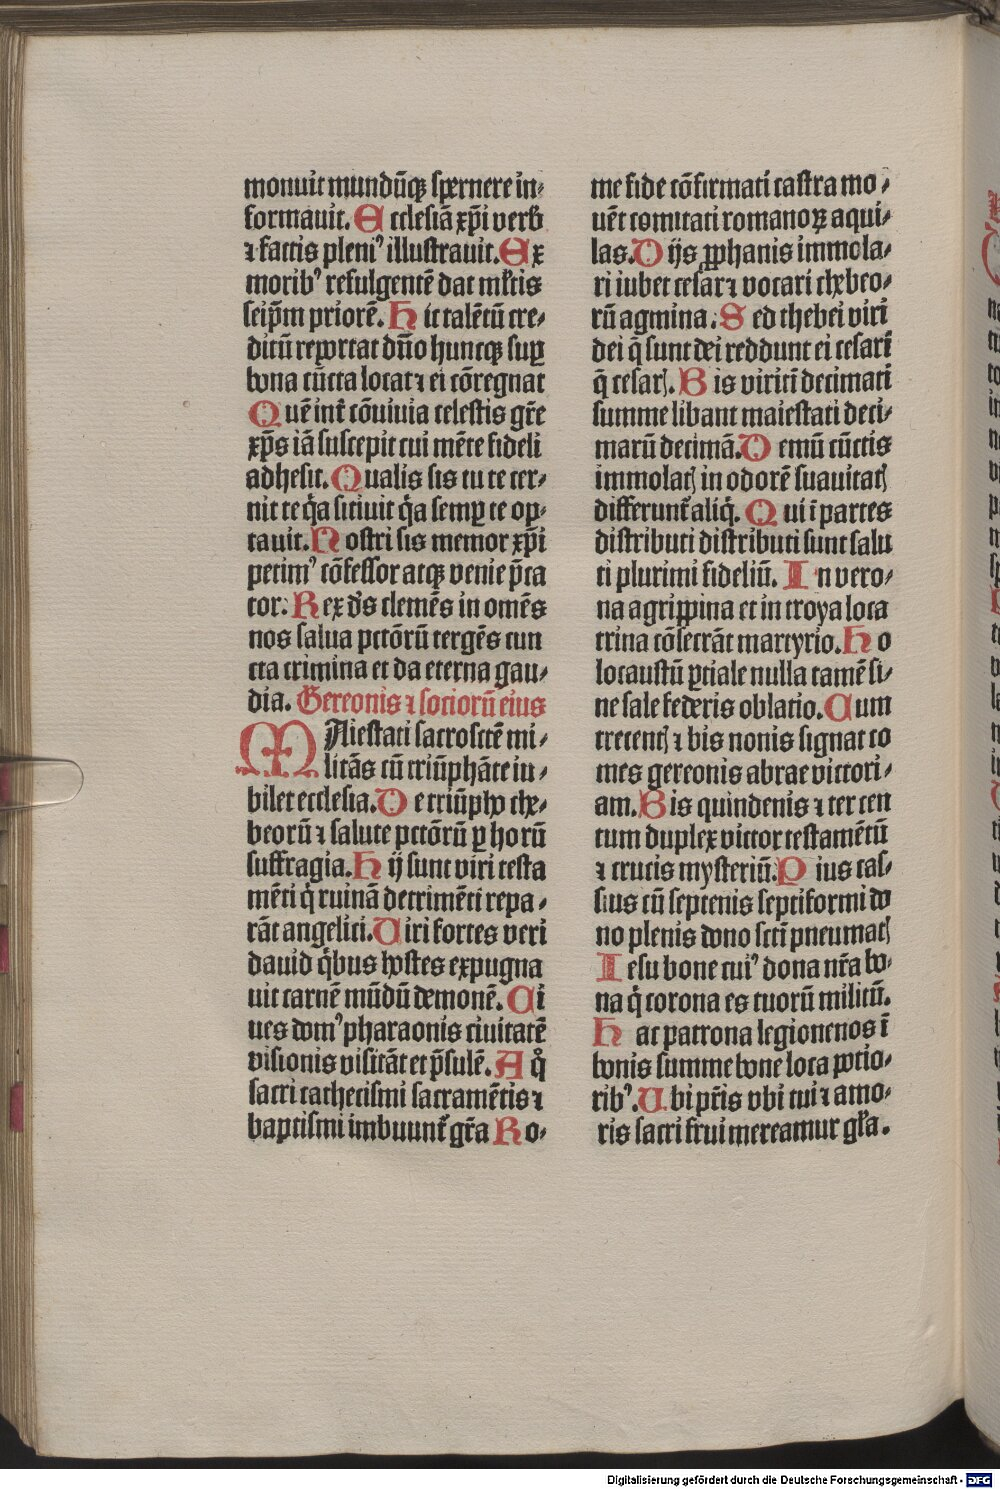 monuit mundūqꝫ spernere in⸗
formauit. Ecclesiā xp̄i verb̄
⁊ factis pleniꝰ illustrauit. Ex
moribꝰ refulgentē dat mr̄tis
seip̄m priorē. Hic talētū cre⸗
ditū reportat dn̄o huncqꝫ suꝑ
bona cūcta locat ⁊ ei cōregnat
Quē int̄ cōuiuia celestis gr̄e
xp̄s iā suscepit cui mēte fideli
adhesit. Qualis sis tu te cer⸗
nit te q̄a sitiuit q̄a semꝑ te op⸗
tauit. Nostri sis memor xp̄i
petimꝰ cōfessor atqꝫ venie p̄ca
tor. Rex d̄s clemēs in omēs
nos salua pctōrū tergēs cun
cta crimina et da eterna gau⸗
dia. Gereonis ⁊ sociorū eius
MAiestati sacrosctē mi⸗
litās cū triūphāte iu⸗
bilet ecclesia. De triūpho the⸗
beorū ⁊ salute pctōrū ꝑ horū
suffragia. Hij sunt viri testa
mēti q̇ ruinā detrimēti repa⸗
rāt angelici. Uiri fortes veri
dauid q̇bus hostes expugna
uit carnē mūdū demonē. Ci
ues domꝰ pharaonis ciuitatē
visionis visitāt et p̄sulē. A q̊
sacri cathecismi sacramētis ⁊
baptismi imbuunt̄ gr̄a Ro⸗
me fide cōfirmati castra mo⸗
uēt comitati romanoꝝ aqui⸗
las. Dijs ꝓphanis immola⸗
ri iubet cesar ⁊ vocari thebeo⸗
rū agmina. Sed thebei viri
dei q̄ sunt dei reddunt ei cesari
q̄ cesarꝭ. Bis viritī decimati
summe libant maiestati deci⸗
marū decimā. Demū cūctis
immolatꝭ in odorē suauitatꝭ
differunt̄ aliq̇. Qui ī partes
distributi distributi sunt salu
ti plurimi fideliū. In vero⸗
na agrippina et in troya loca
trina cōsecrāt martyrio. Ho
locaustū ꝑtiale nulla tamē si⸗
ne sale federis oblatio. Cum
trecentꝭ ⁊ bis nonis signat co
mes gereonis abrae victori⸗
am. Bis quindenis ⁊ ter cen
tum duplex victor testamētū
⁊ crucis mysteriū. Pius cas⸗
sius cū septenis septiformi do
no plenis dono scti pneumatꝭ
Iesu bone tuiꝰ dona nr̄a bo⸗
na q̇ corona es tuorū militū.
Hac patrona legione nos ī
bonis summe bone loca potio⸗
ribꝰ. Ubi pr̄is vbi tui ⁊ amo⸗
ris sacri frui mereamur gl̄a.
Digitalisierung gefördert durch die Deutsche Forschungsgemeinschaft - DFG